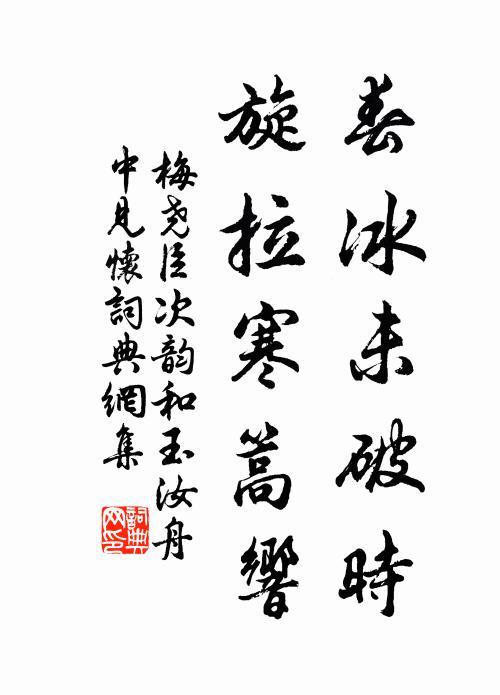 春冰未破時
旋拉寒篙響
梅尧臣次韵和玉汝舟
中見懷詞典網集
詞典
网印